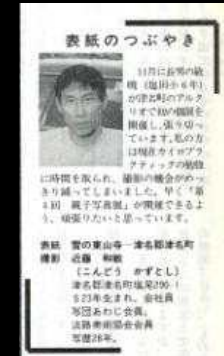 表紙のつぶやき
11月に長男の敏
明（塩田小6年）
が津名町のアルク
リオで初の個展を
開催し、張り切っ
ています。私の方
は現在カイロプラ
クティックの勉強
に時間を取られ、撮影の機会がめっ
きり減ってしまいました。早く「第
4回 親子写真展」が開催できるよ
う、頑張りたいと思っています。
表紙 雪の東山寺―津名郡津名町
撮影 近藤 和敏
（こんどう かずとし）
津名郡津名町塩尾290-1
S23年生まれ、会社員
写団あわじ会員、
淡路美術協会会員
写歴28年。